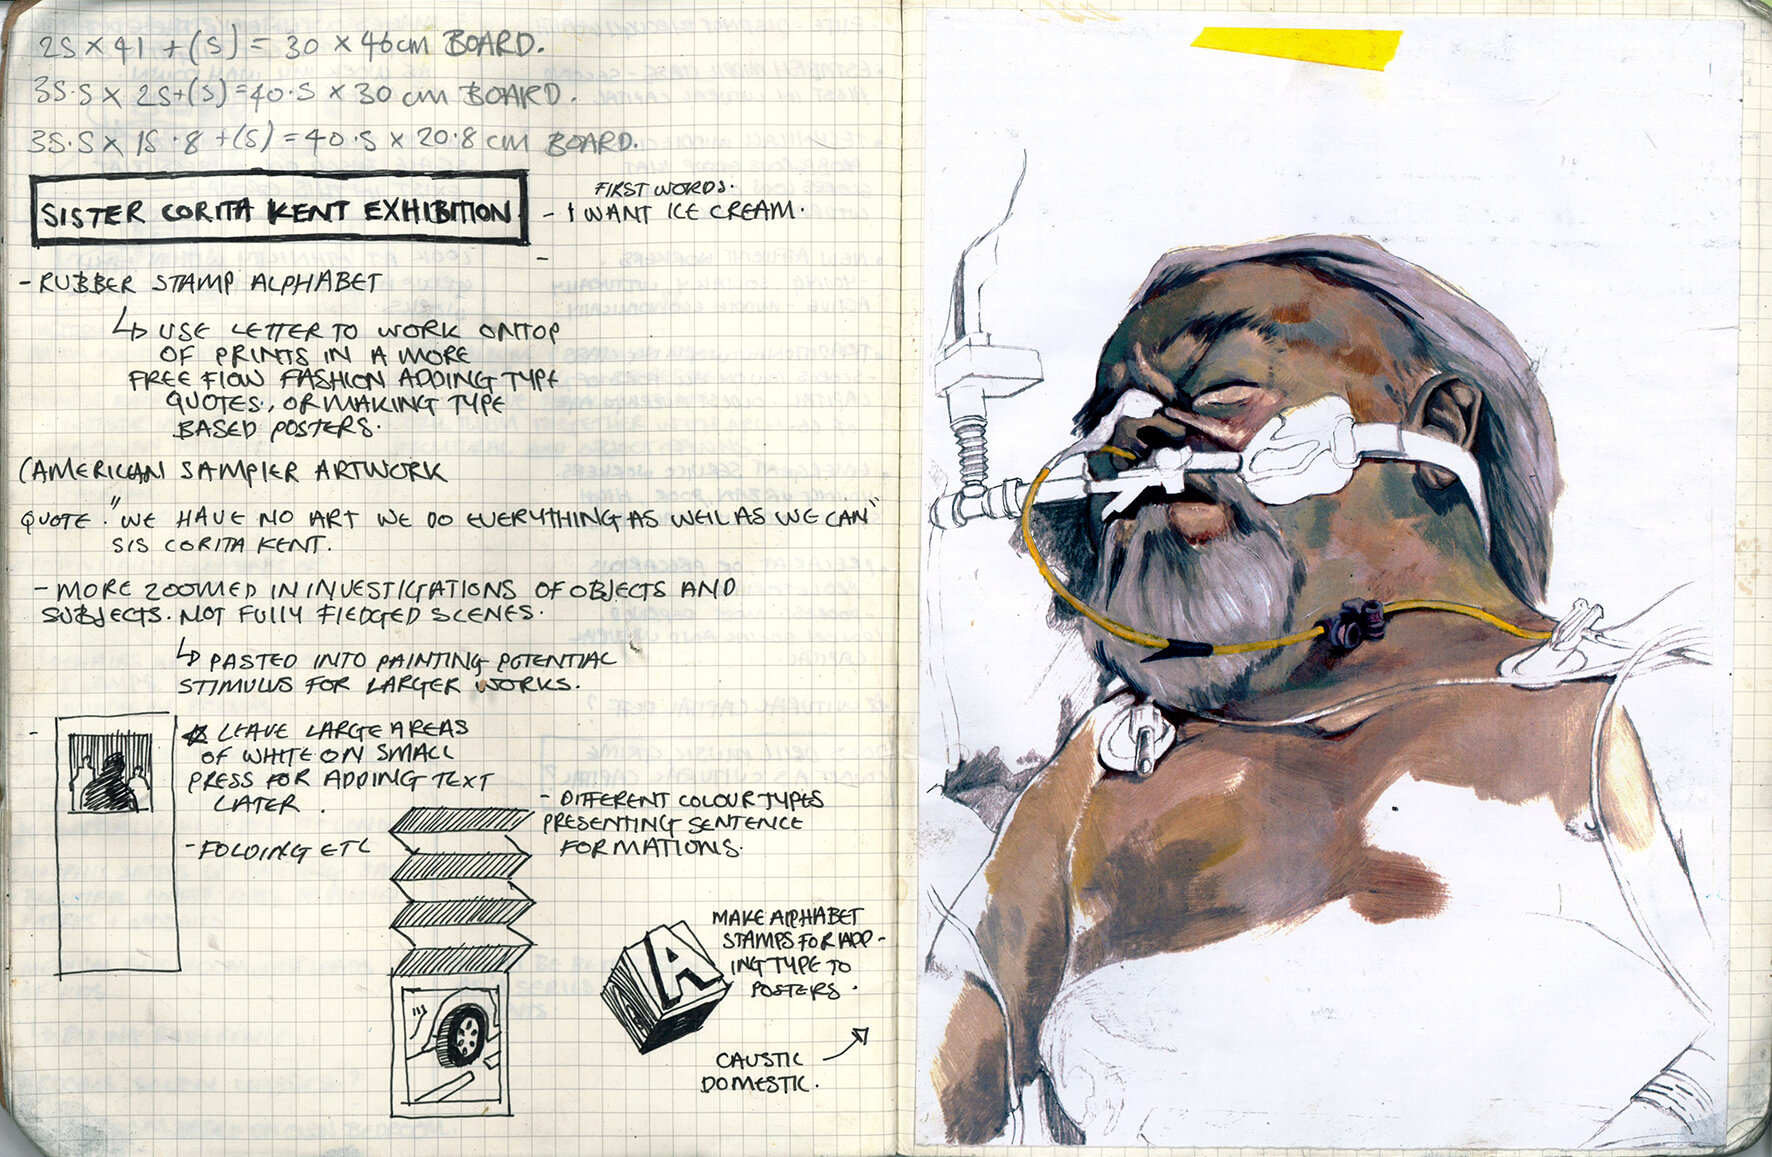 25 × 41 + (5) = 30 × 46cm BOARD.
35.5 × 25+(5)=40.5 × 30 cm BOARD.
35.5 × 15.8 +(5) = 40.5 × 20.8 cm BOARD.
SISTER CORITA KENT EXHIBITION
FIRST WORDS.
- I WANT ICE CREAM.
-
- RUBBER STAMP ALPHABET
↳ USE LETTER TO WORK ONTOP
OF PRINTS IN A MORE
FREE FLOW FASHION ADDING TYPE
QUOTES, OR MAKING TYPE
BASED POSTERS.
(AMERICAN SAMPLER ARTWORK
QUOTE. "WE HAVE NO ART WE DO EVERYTHING AS WELL AS WE CAN"
SIS CORITA KENT.
- MORE ZOOMED IN INVESTIGATIONS OF OBJECTS AND
SUBJECTS. NOT FULLY FLEDGED SCENES.
↳ PASTED INTO PAINTING POTENTIAL
STIMULUS FOR LARGER WORKS.
- * LEAVE LARGE AREAS
OF WHITE ON SMALL
PRESS FOR ADDING TEXT
LATER.
- FOLDING ETC
- DIFFERENT COLOUR TYPES
PRESENTING SENTENCE
FORMATIONS.
A
MAKE ALPHABET
STAMPS FOR ADD-
ING TYPE TO
POSTERS.
CAUSTIC
DOMESTIC.